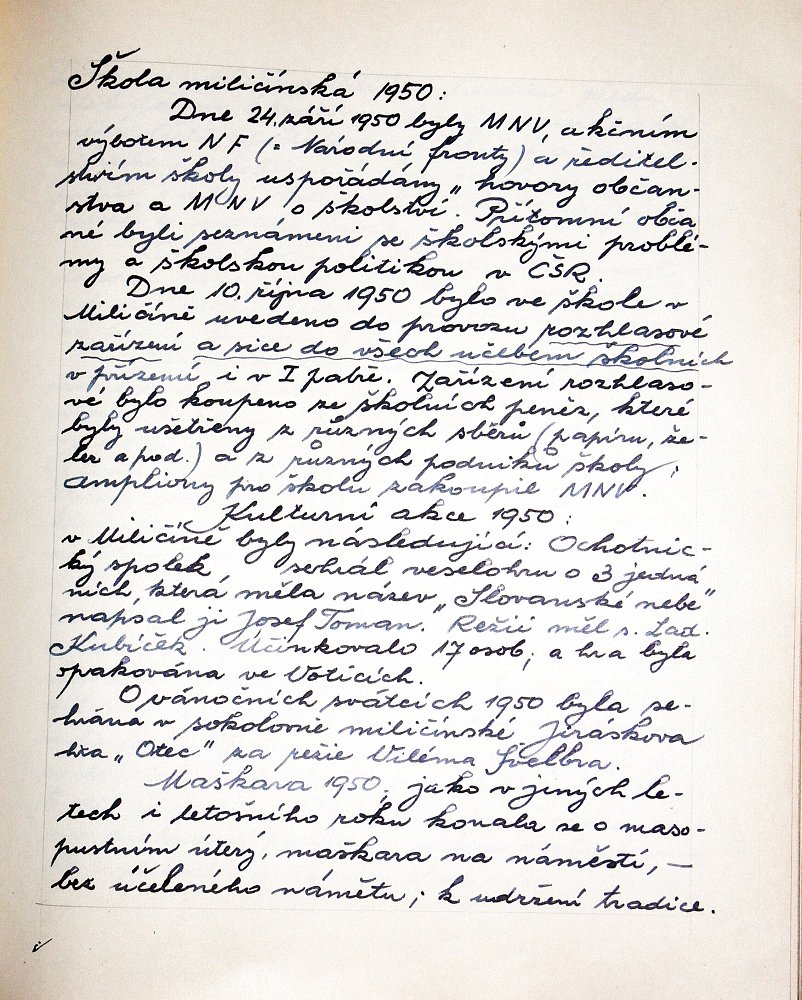 Škola miličínská 1950:
Dne 24. září 1950 byly MNV, akčním
výborem NF (= Národní fronty) a ředitel-
stvím školy uspořádány „hovory občan-
stva a MNV o školství. Přítomní obča
né byli seznámeni se školskými problé-
my a školskou politikou v ČSR.
Dne 10. října 1950 bylo ve škole v
Miličíně uvedeno do provozu rozhlasové
zařízení a sice do všech učeben školních
v přízemí i v I patře. Zařízení rozhlaso-
vé bylo koupeno ze školních peněz, které
byly ušetřeny z různých sběrů (papíru, že-
lez a pod.) a z různých podniků školy;
ampliony pro školu zakoupil MNV.
Kulturní akce 1950:
v Miličíně byly následující: Ochotnic-
ký spolek sehrál veselohru o 3 jedná
ních, která měla název „Slovanské nebe"
napsal ji Josef Toman. Režii měl s. Lad.
Kubíček. Účinkovalo 17 osob, a hra byla
opakována ve Voticích.
O vánočních svátcích 1950 byla se-
hrána v sokolovně miličínské Jiráskova
hra „Otec" za režie Viléma Švelbra.
Maškara 1950. jako v jiných le-
tech i letošního roku konala se o maso-
pustním úterý, maškara na náměstí, —
bez účeleného námětu; k udržení tradice.